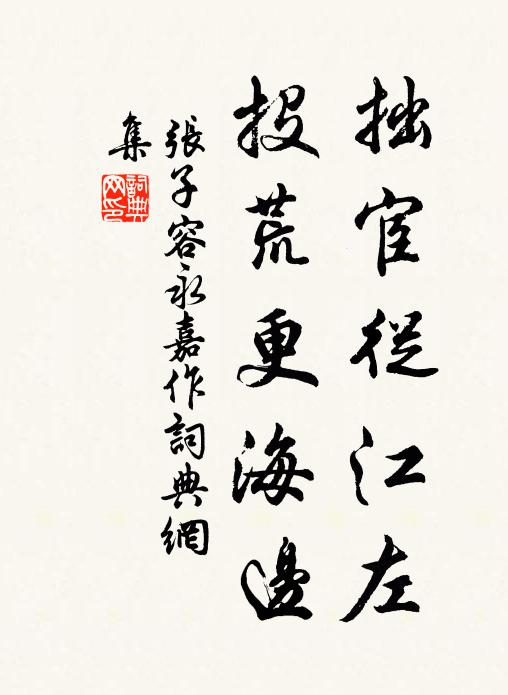 拙宦從江左
投荒更海邊
張子容永嘉作詞典網
集
詞典
网印